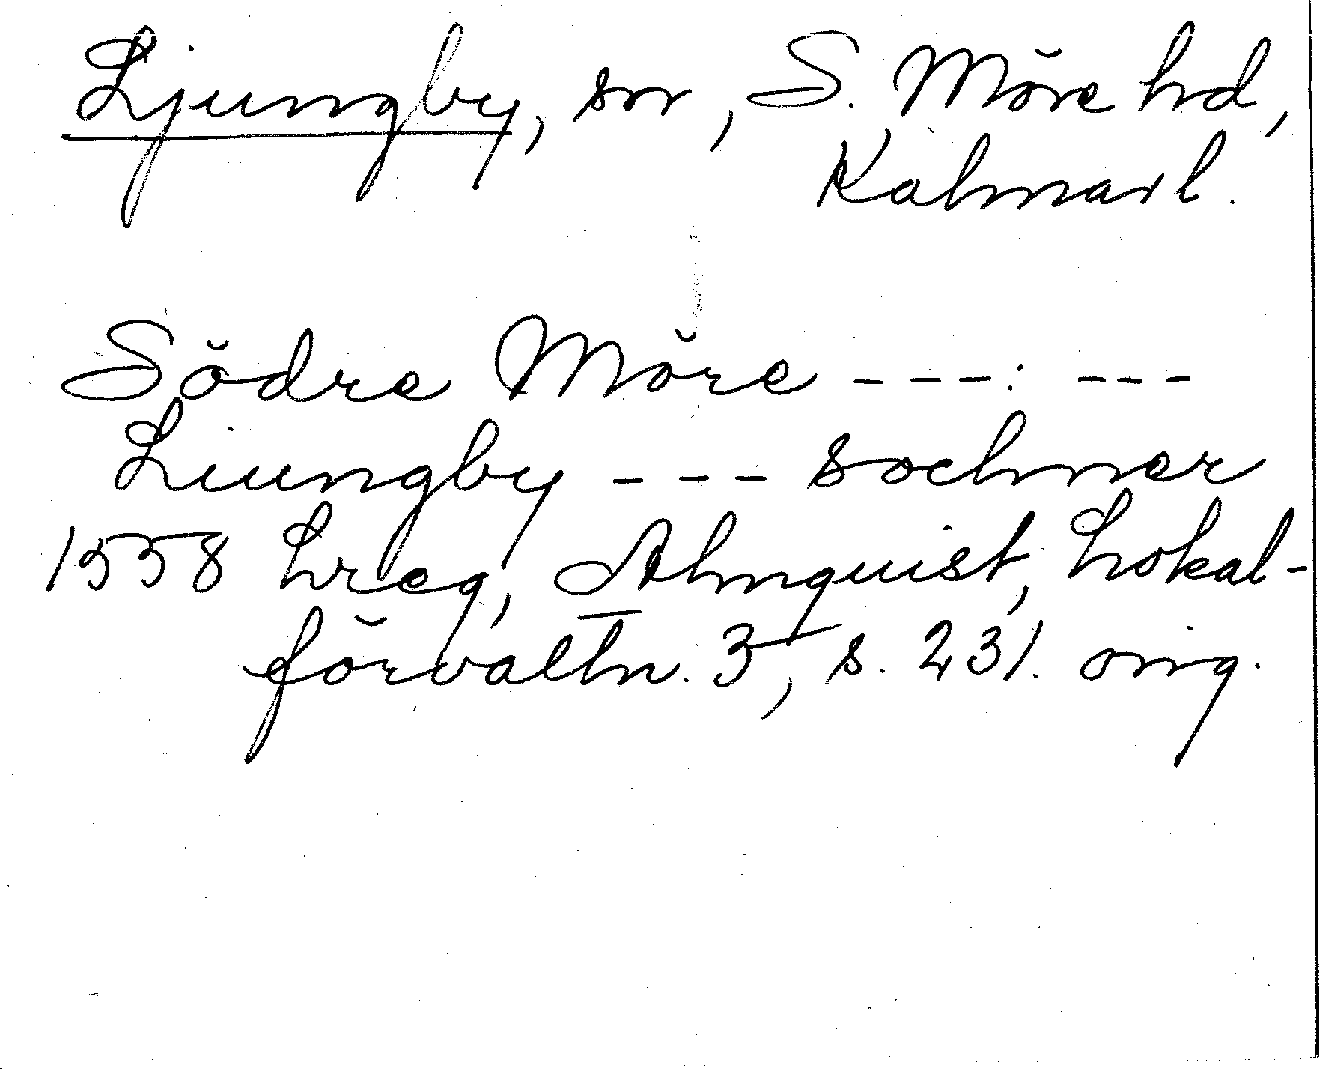 Ljungby, sn, S. Möre hd,
Kalmar l.
Södre Möre ---: ---
Liungby --- sochner
1558 Lreg, Almquist, Lokal-
förvaltn. 3, s. 231. orig.